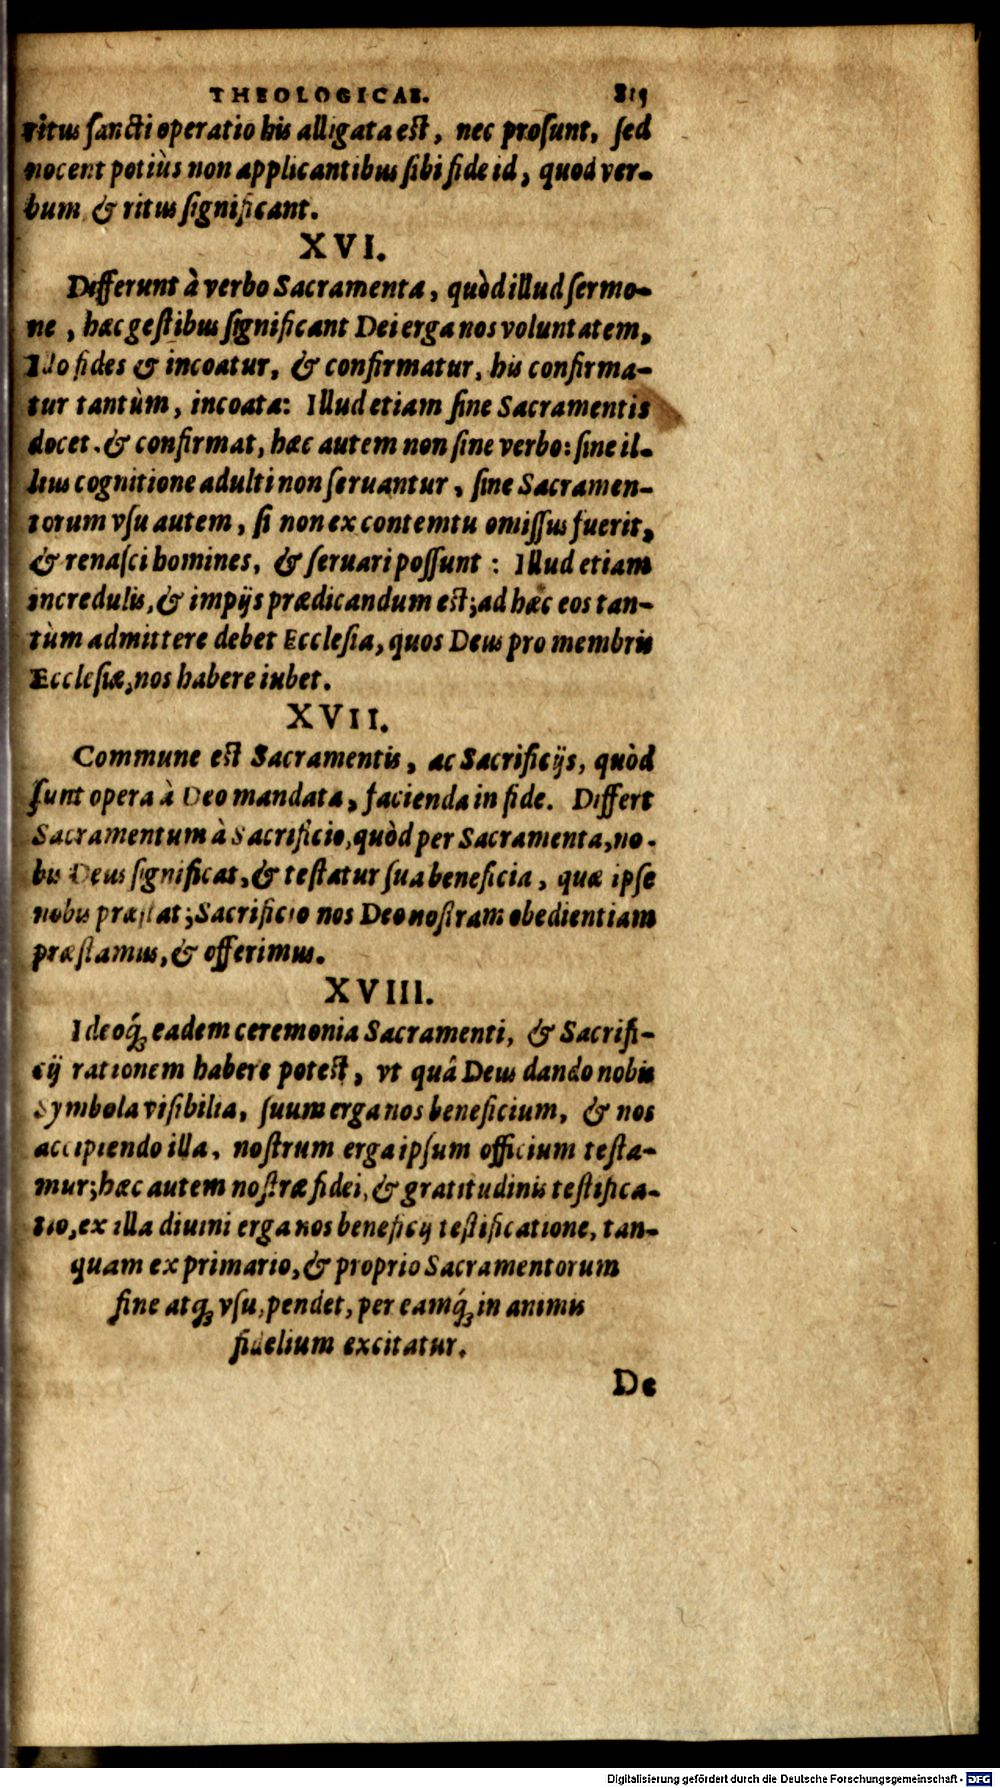 THEOLOGICAE. 815
ritus sancti operatio his alligata est, nec prosunt, sed
nocent potiùs non applicantibus sibi fide id, quod ver-
bum & ritus significant.
XVI.
Differunt à verbo Sacramenta, quòd illud sermo-
ne, hæc gestibus significant Dei erga nos voluntatem,
Illo fides & incoatur, & confirmatur, his confirma-
tur tantùm, incoata: Illud etiam sine Sacramentis
docet, & confirmat, hæc autem non sine verbo: sine il-
lius cognitione adulti non seruantur, sine Sacramen-
torum vsu autem, si non ex contemtu omissus fuerit,
& renasci homines, & seruari possunt: Illud etiam
incredulis, & impijs prædicandum est; ad hæc eos tan-
tùm admittere debet Ecclesia, quos Deus pro membris
Ecclesiæ, nos habere iubet.
XVII.
Commune est Sacramentis, ac Sacrificijs, quòd
sunt opera à Deo mandata, facienda in fide. Differt
Sacramentum à Sacrificio, quòd per Sacramenta, no-
bis Deus significat, & testatur sua beneficia, quæ ipse
nobis præstat; Sacrificio nos Deo nostram obedientiam
præstamus, & offerimus.
XVIII.
Ideoq́; eadem ceremonia Sacramenti, & Sacrifi-
cij rationem habere potest, vt quâ Deus dando nobis
Symbola visibilia, suum erga nos beneficium, & nos
accipiendo illa, nostrum erga ipsum officium testa-
mur; hæc autem nostræ fidei, & gratitudinis testifica-
tio, ex illa diuini erga nos beneficij testificatione, tan-
quam ex primario, & proprio Sacramentorum
fine atq; vsu, pendet, per eamq́; in animis
fidelium excitatur.
De
Digitalisierung gefördert durch die Deutsche Forschungsgemeinschaft - DFG